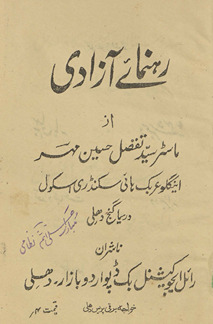 رہنمائے آزادی
از
ماسٹر سید تفضل حسین مہر
اینگلو عربک ہائی سکنڈری اسکول
دریا گنج دھلی
ناشران
رائل ایجوکیشنل بک ڈپو اردو بازار، دھلی
خواجہ برقی پریس دہلی
قیمت ۴؍